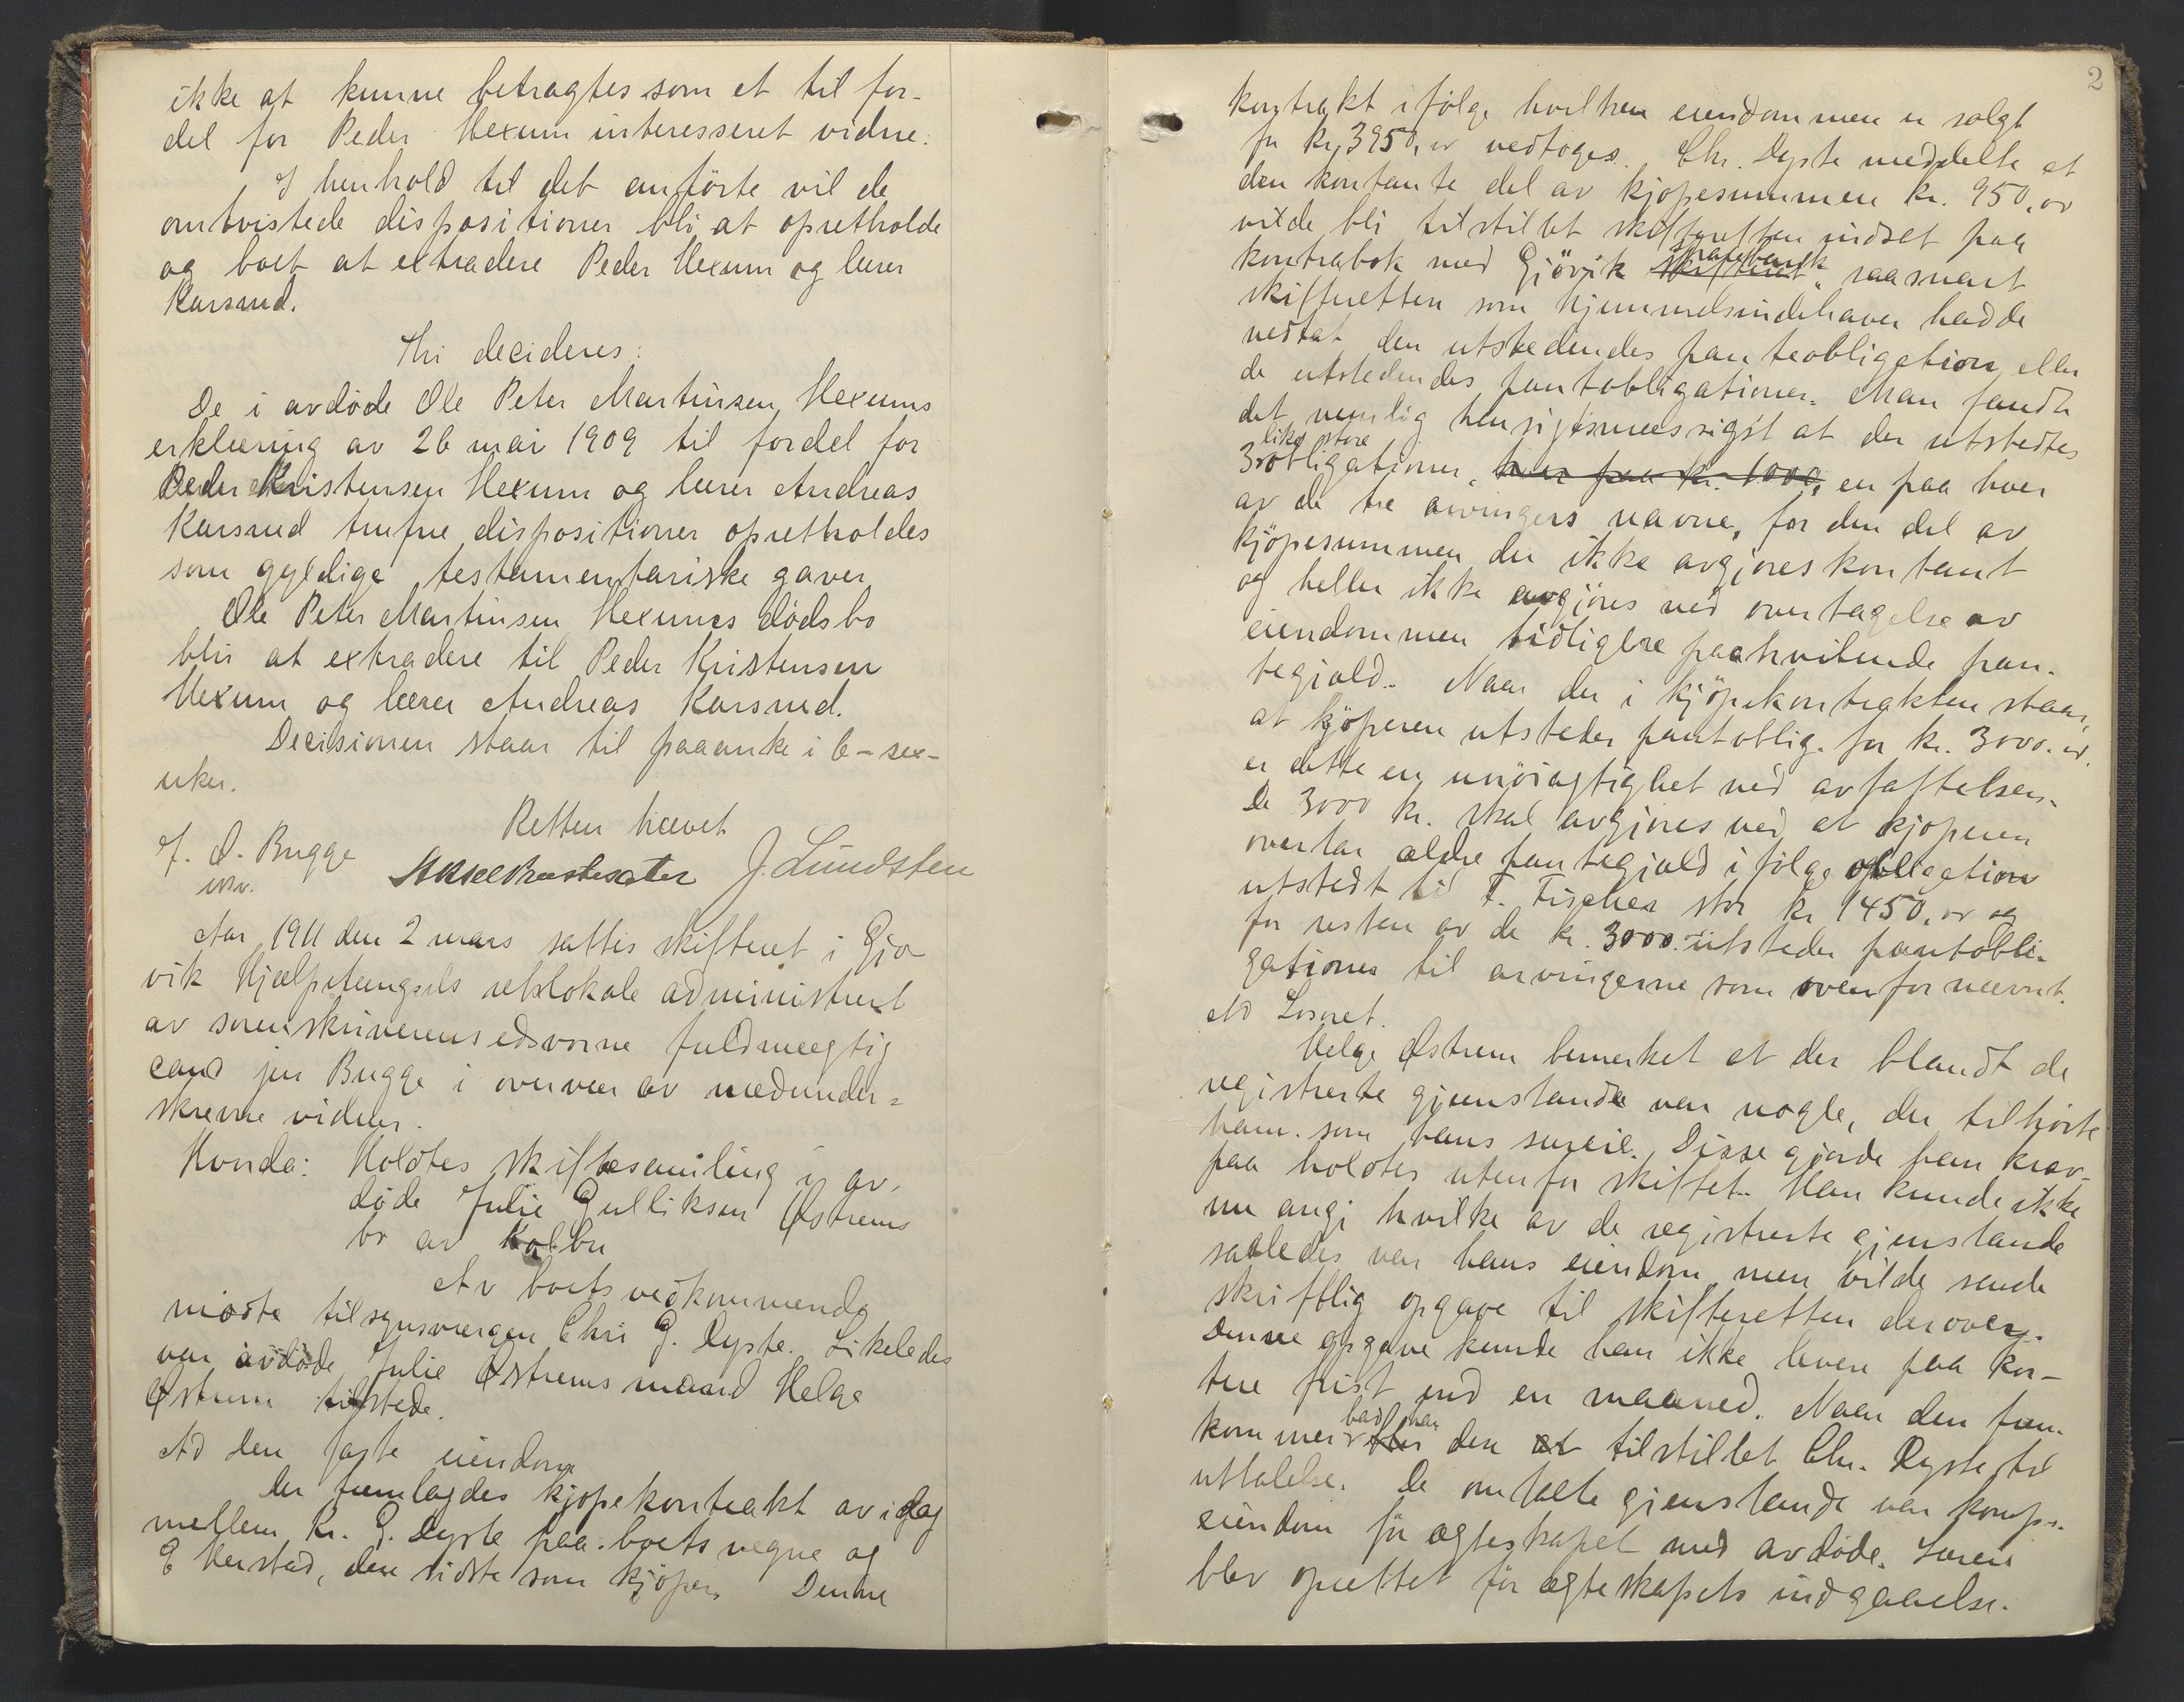 ikke at kunne betragtes som et til for-
del for Peder Hexum interesseret vidne.
I henhold til det anførte vil de
omtvistede dispositioner bli at opretholde
og boet at extradere Peder Hexum og lærer
Karsrud.
Thi decideres:
De i avdøde Ole Peter Martinsen Hexums
erklæring av 26 mai 1909 til fordel for
Peder Kristensen Hexum og lærer Andreas
Karsrud trufne dispositioner opretholdes
som gyldige testamentariske gaver
Ole Peter Martinsen Hexums dødsbo
blir at extradere til Peder Kristensen
Hexum og lærer Andreas Karsrud.
Decisionen staar til paaanke i 6 - sex-
uker.
Retten hævet
J. D. Bugge
J. Lundsten
Aar 1911 den 2 mars sattes skifteret i Gjø-
vik Hjælpefængsels retslokale administrert
av sorenskriverens edsvorne fuldmægtig
cand jur Bugge i overvær av medunder-
skrevne vidner.
Hvorda: Holdtes skiftesamling i av-
døde Julie Gulliksen Østrems
bo av Kolbu
Av boets vedkommende
møtte tilsynsværgen Chr G. Dyste. Likeledes
var avdøde Julie Østrems mand Helge
Østrem tilstede.
Ad den faste eiendom
Der fremlagdes kjøpekontrakt av idag
mellem Kr. G. Dyste paa boets vegne og
E Herstad, den sidste som kjøper. Denne
2
kontrakt ifølge hvilken eiendommen er solgt
for kr. 3950,00 vedtoges. Chr. Dyste meddelte at
den kontante del av kjøpesummen kr. 950,00
vilde bli tilstillet skifteretten indsat paa
kontrabok med Gjøvik sparebank saasnart
skifteretten som hjemmelsindehaver hadde
vedtat den utstedendes panteobligation eller
de utstedendes pantobligationer. Man fandt
det nemlig hensigtsmæssigst at der utstedtes
3 like store obligationer, hver paa kr. 1000, en paa hver
av de tre arvingers navne, for den del av
kjøpesummen der ikke avgjøres kontant
og heller ikke avgjøres ved overtagelse av
eiendommen tidligere paahvilende pan-
tegjæld. Naar der i kjøpekontrakten staar,
at kjøperen utsteder pantoblig. for kr. 3000.00
er dette en unøiagtighet ved avfattelsen.
De 3000 kr. skal avgjøres ved at kjøperen
overtar ældre pantegjæld i følge obligation
utstedt til F. Fischer stor kr 1450,00 og
for resten av de kr. 3000.- utsteder pantobli-
gationer til arvingerne som ovenfor nævnt.
Ad Løsøret.
Helge Østrem bemerket at der blandt de
registrerte gjenstande var nogle, der tilhørte
ham som hans særeie. Disse gjorde han krav
paa holdtes utenfor skiftet. Han kunde ikke
nu angi hvilke av de registrerte gjenstande
saaledes var hans eiendom men vilde sende
skriftlig opgave til skifteretten derover.
Denne opgave kunde han ikke levere paa kor-
tere frist end en maaned. Naar den frem-
kommer bad han den tilstillet Chr. Dyste til
uttalelse. De omtalte gjenstande var komp.
eiendom før ægteskapet med avdøde. Særeie
blev oprettet før ægteskapets indgaaelse.